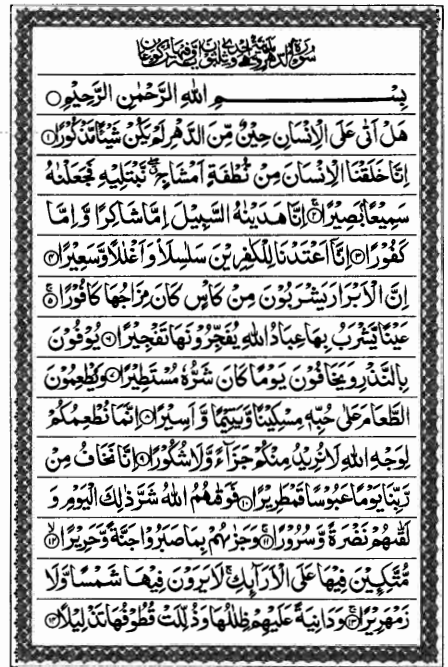 سُورَةُ الدَّهْرِ
بِسْمِ اللهِ الرَّحْمٰنِ الرَّحِيْمِ
هَلْ اَتٰى عَلَى الْاِنْسَانِ حِيْنٌ مِّنَ الدَّهْرِ لَمْ يَكُنْ شَيْئًا مَّذْكُوْرًا ۝۱
اِنَّا خَلَقْنَا الْاِنْسَانَ مِنْ نُّطْفَةٍ اَمْشَاجٍ ۖ نَّبْتَلِيْهِ فَجَعَلْنٰهُ
سَمِيْعًۢا بَصِيْرًا ۝۲ اِنَّا هَدَيْنٰهُ السَّبِيْلَ اِمَّا شَاكِرًا وَّ اِمَّا
كَفُوْرًا ۝۳ اِنَّاۤ اَعْتَدْنَا لِلْكٰفِرِيْنَ سَلٰسِلَا۟ وَ اَغْلٰلًا وَّ سَعِيْرًا ۝۴
اِنَّ الْاَبْرَارَ يَشْرَبُوْنَ مِنْ كَاْسٍ كَانَ مِزَاجُهَا كَافُوْرًا ۝۵
عَيْنًا يَّشْرَبُ بِهَا عِبَادُ اللهِ يُفَجِّرُوْنَهَا تَفْجِيْرًا ۝۶ يُوْفُوْنَ
بِالنَّذْرِ وَ يَخَافُوْنَ يَوْمًا كَانَ شَرُّهٗ مُسْتَطِيْرًا ۝۷ وَ يُطْعِمُوْنَ
الطَّعَامَ عَلٰى حُبِّهٖ مِسْكِيْنًا وَّ يَتِيْمًا وَّ اَسِيْرًا ۝۸ اِنَّمَا نُطْعِمُكُمْ
لِوَجْهِ اللهِ لَا نُرِيْدُ مِنْكُمْ جَزَآءً وَّ لَا شُكُوْرًا ۝۹ اِنَّا نَخَافُ مِنْ
رَّبِّنَا يَوْمًا عَبُوْسًا قَمْطَرِيْرًا ۝۱۰ فَوَقٰىهُمُ اللهُ شَرَّ ذٰلِكَ الْيَوْمِ وَ
لَقّٰىهُمْ نَضْرَةً وَّ سُرُوْرًا ۝۱۱ وَ جَزٰىهُمْ بِمَا صَبَرُوْا جَنَّةً وَّ حَرِيْرًا ۝۱۲
مُّتَّكِـِٕيْنَ فِيْهَا عَلَى الْاَرَآىِٕكِ ۚ لَا يَرَوْنَ فِيْهَا شَمْسًا وَّ لَا
زَمْهَرِيْرًا ۝۱۳ وَ دَانِيَةً عَلَيْهِمْ ظِلٰلُهَا وَ ذُلِّلَتْ قُطُوْفُهَا تَذْلِيْلًا ۝۱۴